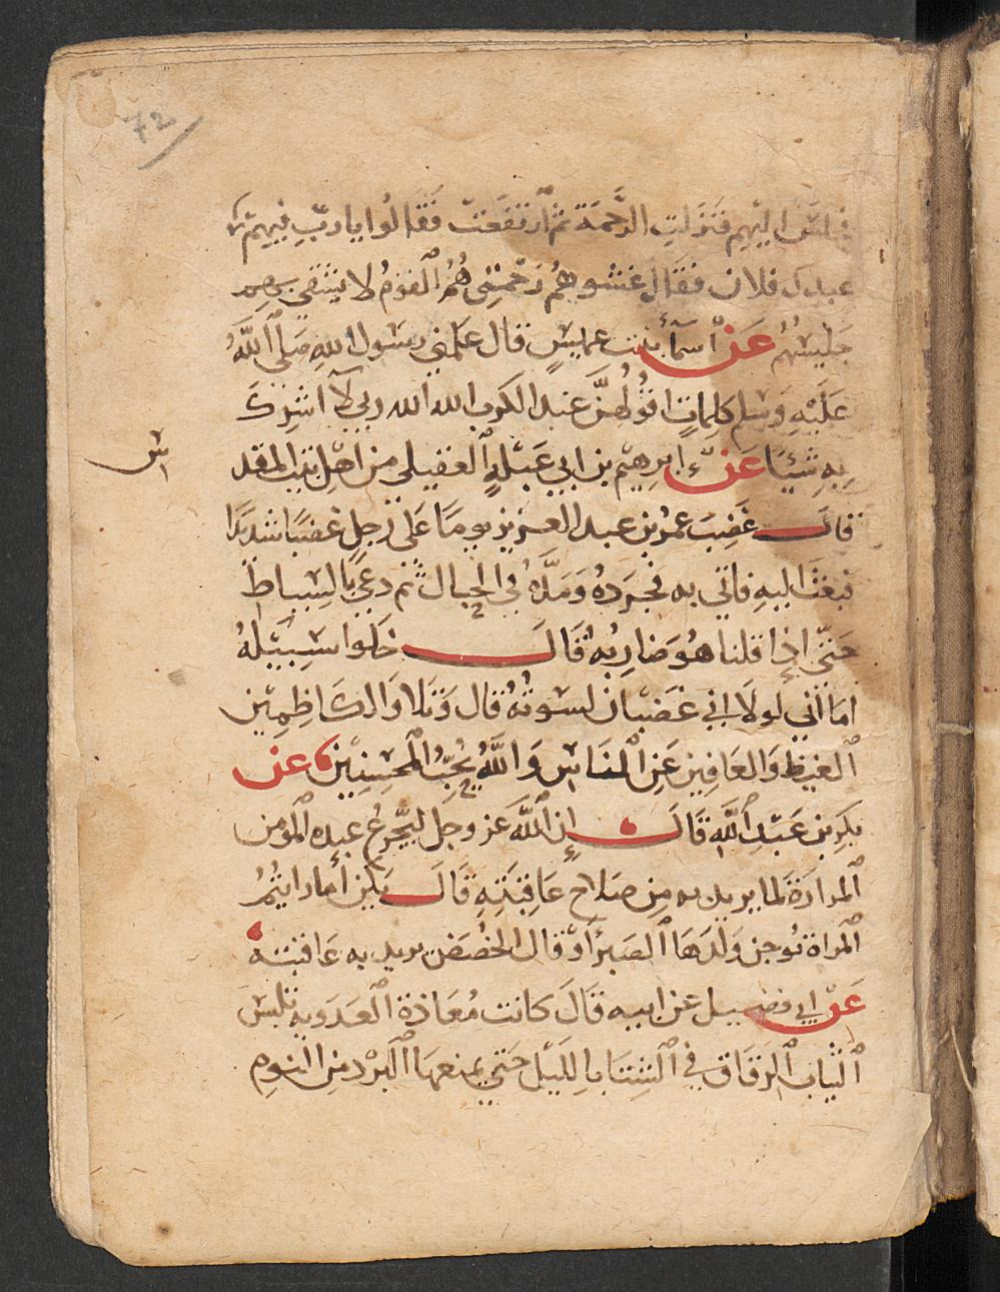 72
فجلس اليهم فنزلت الرحمة ثم ارتفعت فقالوا يا رب فيهم
عبدك فلان فقال غشوهم رحمتي هم القوم لا يشقى بهم
جليسهم عن اسماء بنت عميس قال علمني رسول الله صلى الله
عليه وسلم كلمات اقولهن عند الكرب الله الله ربي لا اشرك
به شيئا عن ابرهيم بن ابي عبلة العقيلي من اهل بيت المقد
اش
قال غضب عمر بن عبد العزيز يوما على رجل غضبا شديدا
فبعث اليه فاتي به فجرده ومده في الحبال ثم دعى بالسياط
حتى اذا قلنا هو ضاربه قال خلوا سبيله
اما اني لولا اني غضبان لسوته قال وتلا والكاظمين
الغيظ والعافين عن الناس والله يحب المحسنين عن
بكر بن عبد الله قال ان الله عز وجل ليجرع عبده المومن
المرارة لما يريد به من صلاح عاقبته قال بكر اما رايتم
المراة توجر ولدها الصبر او قال الحضض يريد به عاقبته
عن ابي فضيل عن ابيه قال كانت معاذة العدوية تلبس
الثياب الرقاق في الشتا بالليل حتى يمنعها البرد من النوم